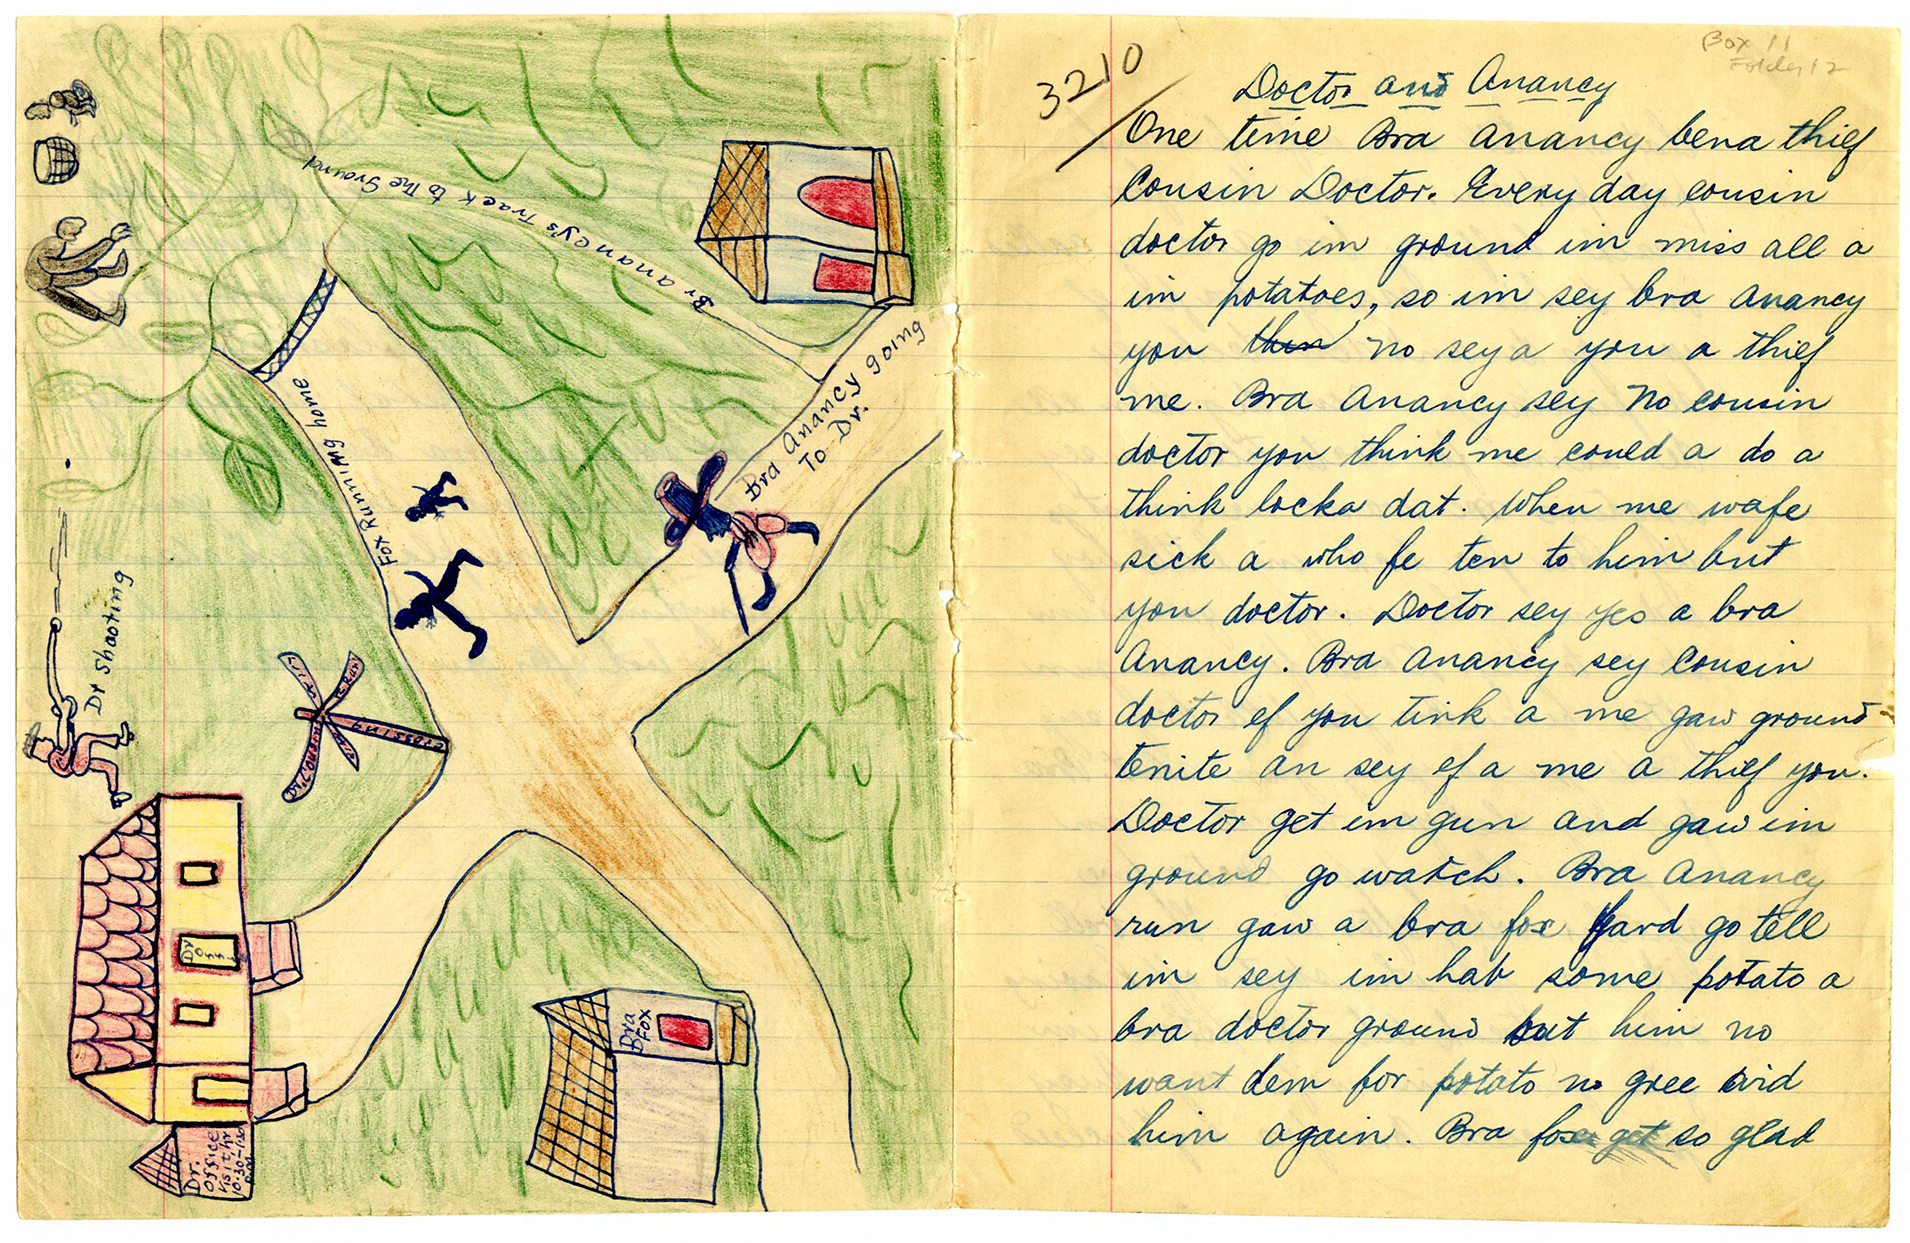 Br anancy's Track to The Ground
Bra Anancy going
To Dr.
Fox Running home
Dr Shooting
CROSSING
Bra
Fox
Dr.
office
Visit, hr
10.30-1.30
3210
Box 11
Folder 12
Doctor and Anancy
One time Bra Anancy bena thief
Cousin Doctor. Every day cousin
doctor go im ground im miss all a
im potatoes, so im sey bra Anancy
you no sey a you a thief
me. Bra Anancy sey No cousin
doctor you think me could a do a
think locka dat. When me wafe
sick a who fe ten to him but
you doctor. Doctor sey yes a bra
Anancy. Bra Anancy sey Cousin
doctor ef you tink a me gaw ground
tenite an sey ef a me a thief you.
Doctor get im gun and gaw im
ground go watch. Bra Anancy
run gaw a bra fox Yard go tell
im sey im hab some potato a
bra doctor ground but him no
want dem for potato no gree wid
him again. Bra fox get so glad